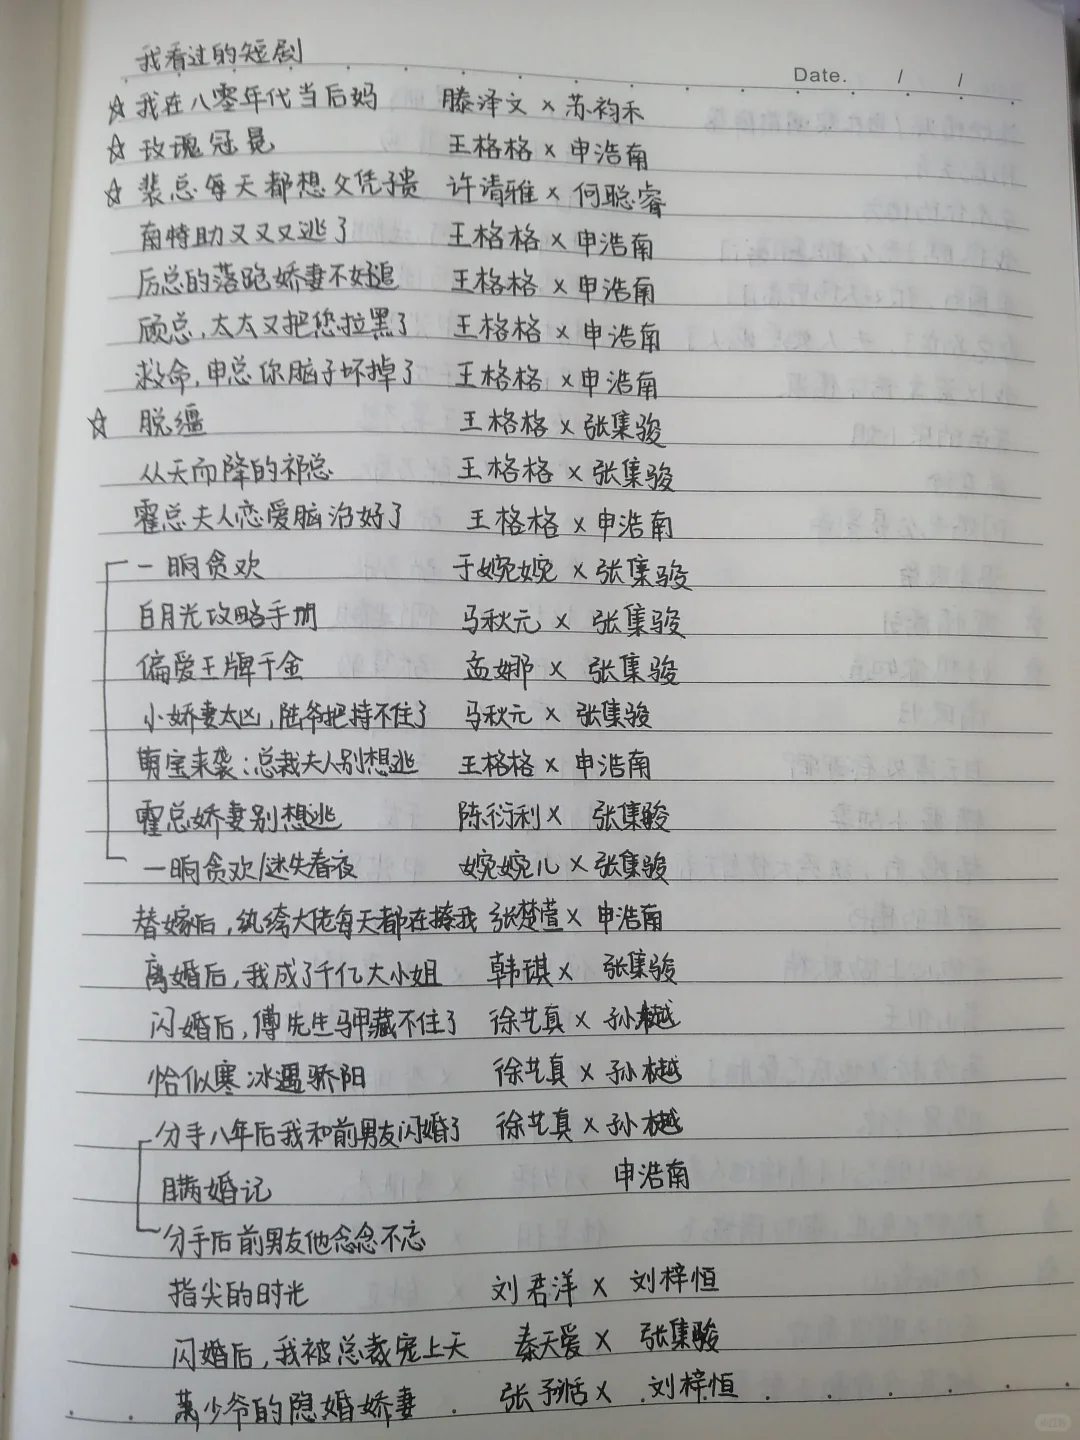 我看过的短剧
Date. / /
☆ 我在八零年代当后妈 滕泽文 × 苏袀禾
☆ 玫瑰冠冕 王格格 × 申浩南
☆ 裴总每天都想父凭子贵 许清雅 × 何聪睿
南特助又又又逃了 王格格 × 申浩南
厉总的落跑娇妻不好追 王格格 × 申浩南
顾总,太太又把您拉黑了 王格格 × 申浩南
救命,申总你脑子坏掉了 王格格 × 申浩南
☆ 脱缰 王格格 × 张集骏
从天而降的祁总 王格格 × 张集骏
霍总夫人恋爱脑治好了 王格格 × 申浩南
一晌贪欢 于婉婉 × 张集骏
白月光攻略手册 马秋元 × 张集骏
偏爱王牌千金 孟娜 × 张集骏
小娇妻太凶,陆爷把持不住了 马秋元 × 张集骏
萌宝来袭:总裁夫人别想逃 王格格 × 申浩南
霍总娇妻别想逃 陈衍利 × 张集骏
一晌贪欢/迷失春夜 婉婉儿 × 张集骏
替嫁后,纨绔大佬每天都在撩我 张楚萱 × 申浩南
离婚后,我成了千亿大小姐 韩琪 × 张集骏
闪婚后,傅先生马甲藏不住了 徐艺真 × 孙樾
恰似寒冰遇骄阳 徐艺真 × 孙樾
分手八年后我和前男友闪婚了 徐艺真 × 孙樾
瞒婚记 申浩南
分手后前男友他念念不忘
指尖的时光 刘君洋 × 刘梓恒
闪婚后,我被总裁宠上天 秦天爱 × 张集骏
少爷的隐婚娇妻 张予恬 × 刘梓恒